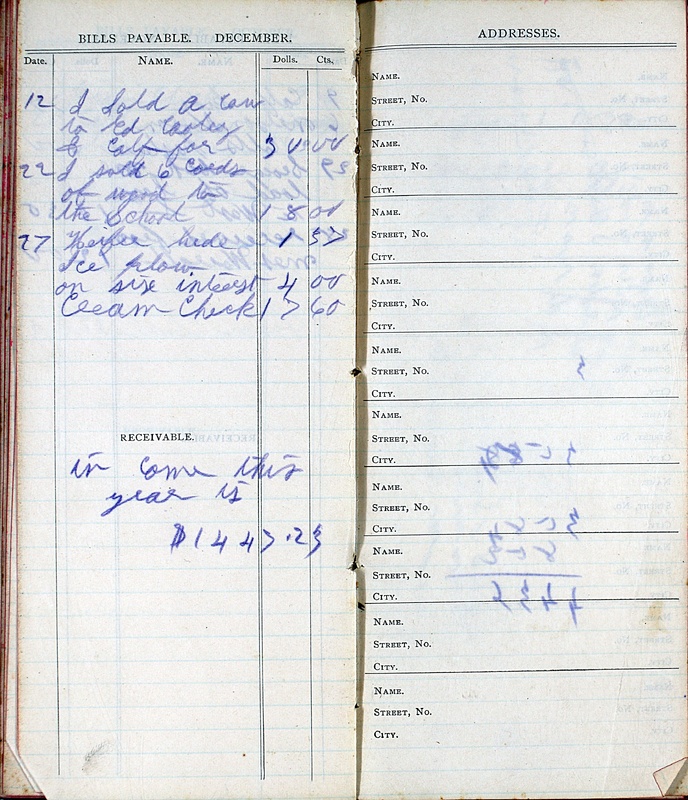 BILLS PAYABLE. DECEMBER.
Date. NAME. Dolls. Cts.
12 I sold a cow
to Ed
& Calf for 30 00
22 I sold 6 Cords
of wood to
the School 18 00
27 Heifer hide 1 57
Ice plow
on size interest 4 00
Cream Check 17 60
RECEIVABLE.
in come this
year is
$1447.23
ADDRESSES.
NAME.
STREET, NO.
CITY.
NAME.
STREET, NO.
CITY.
NAME.
STREET, NO.
CITY.
NAME.
STREET, NO.
CITY.
NAME.
STREET, NO.
CITY.
NAME.
STREET, NO.
CITY.
NAME.
STREET, NO.
CITY.
NAME.
STREET, NO.
CITY.
NAME.
STREET, NO.
CITY.
NAME.
STREET, NO.
CITY.